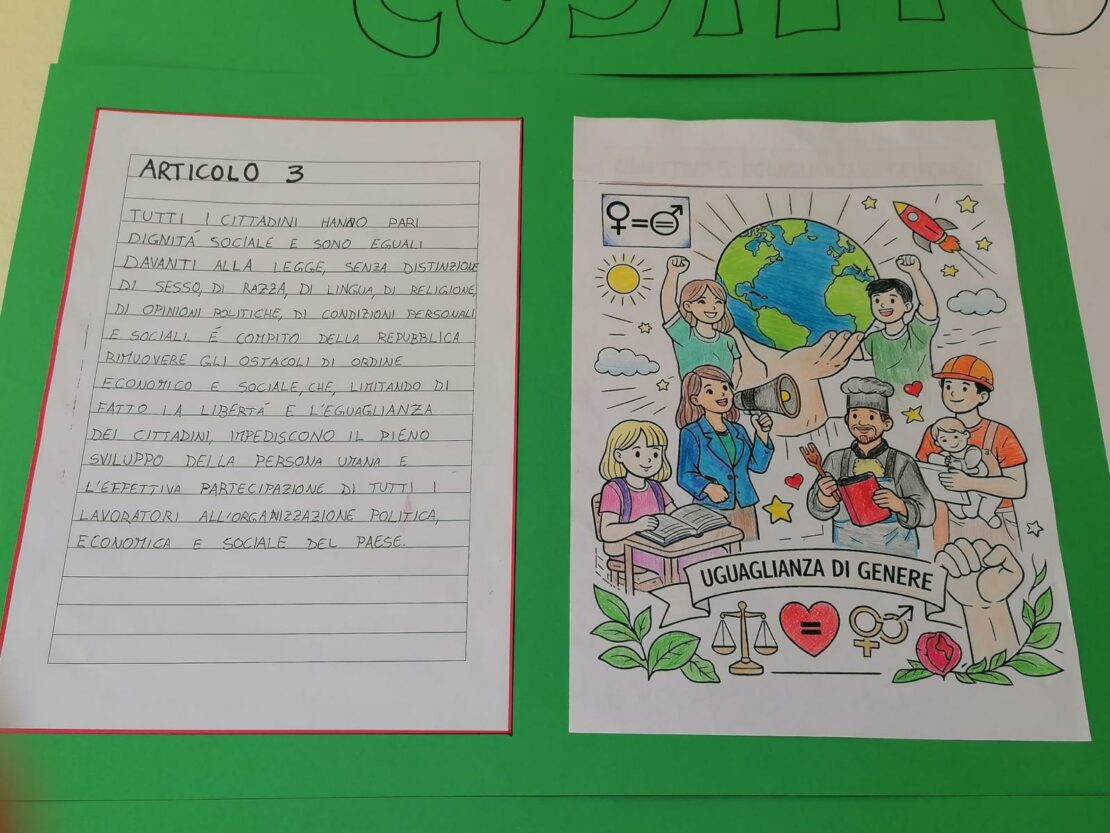 ARTICOLO 3
TUTTI I CITTADINI HANNO PARI
DIGNITÁ SOCIALE E SONO EGUALI
DAVANTI ALLA LEGGE, SENZA DISTINZIONE
DI SESSO, DI RAZZA, DI LINGUA, DI RELIGIONE,
DI OPINIONI POLITICHE, DI CONDIZIONI PERSONALI
E SOCIALI. É COMPITO DELLA REPUBBLICA
RIMUOVERE GLI OSTACOLI DI ORDINE
ECONOMICO E SOCIALE, CHE, LIMITANDO DI
FATTO LA LIBERTÁ E L'EGUAGLIANZA
DEI CITTADINI, IMPEDISCONO IL PIENO
SVILUPPO DELLA PERSONA UMANA E
L'EFFETTIVA PARTECIPAZIONE DI TUTTI I
LAVORATORI ALL'ORGANIZZAZIONE POLITICA,
ECONOMICA E SOCIALE DEL PAESE.
♀=♂
UGUAGLIANZA DI GENERE
=